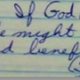 If God
might
benef